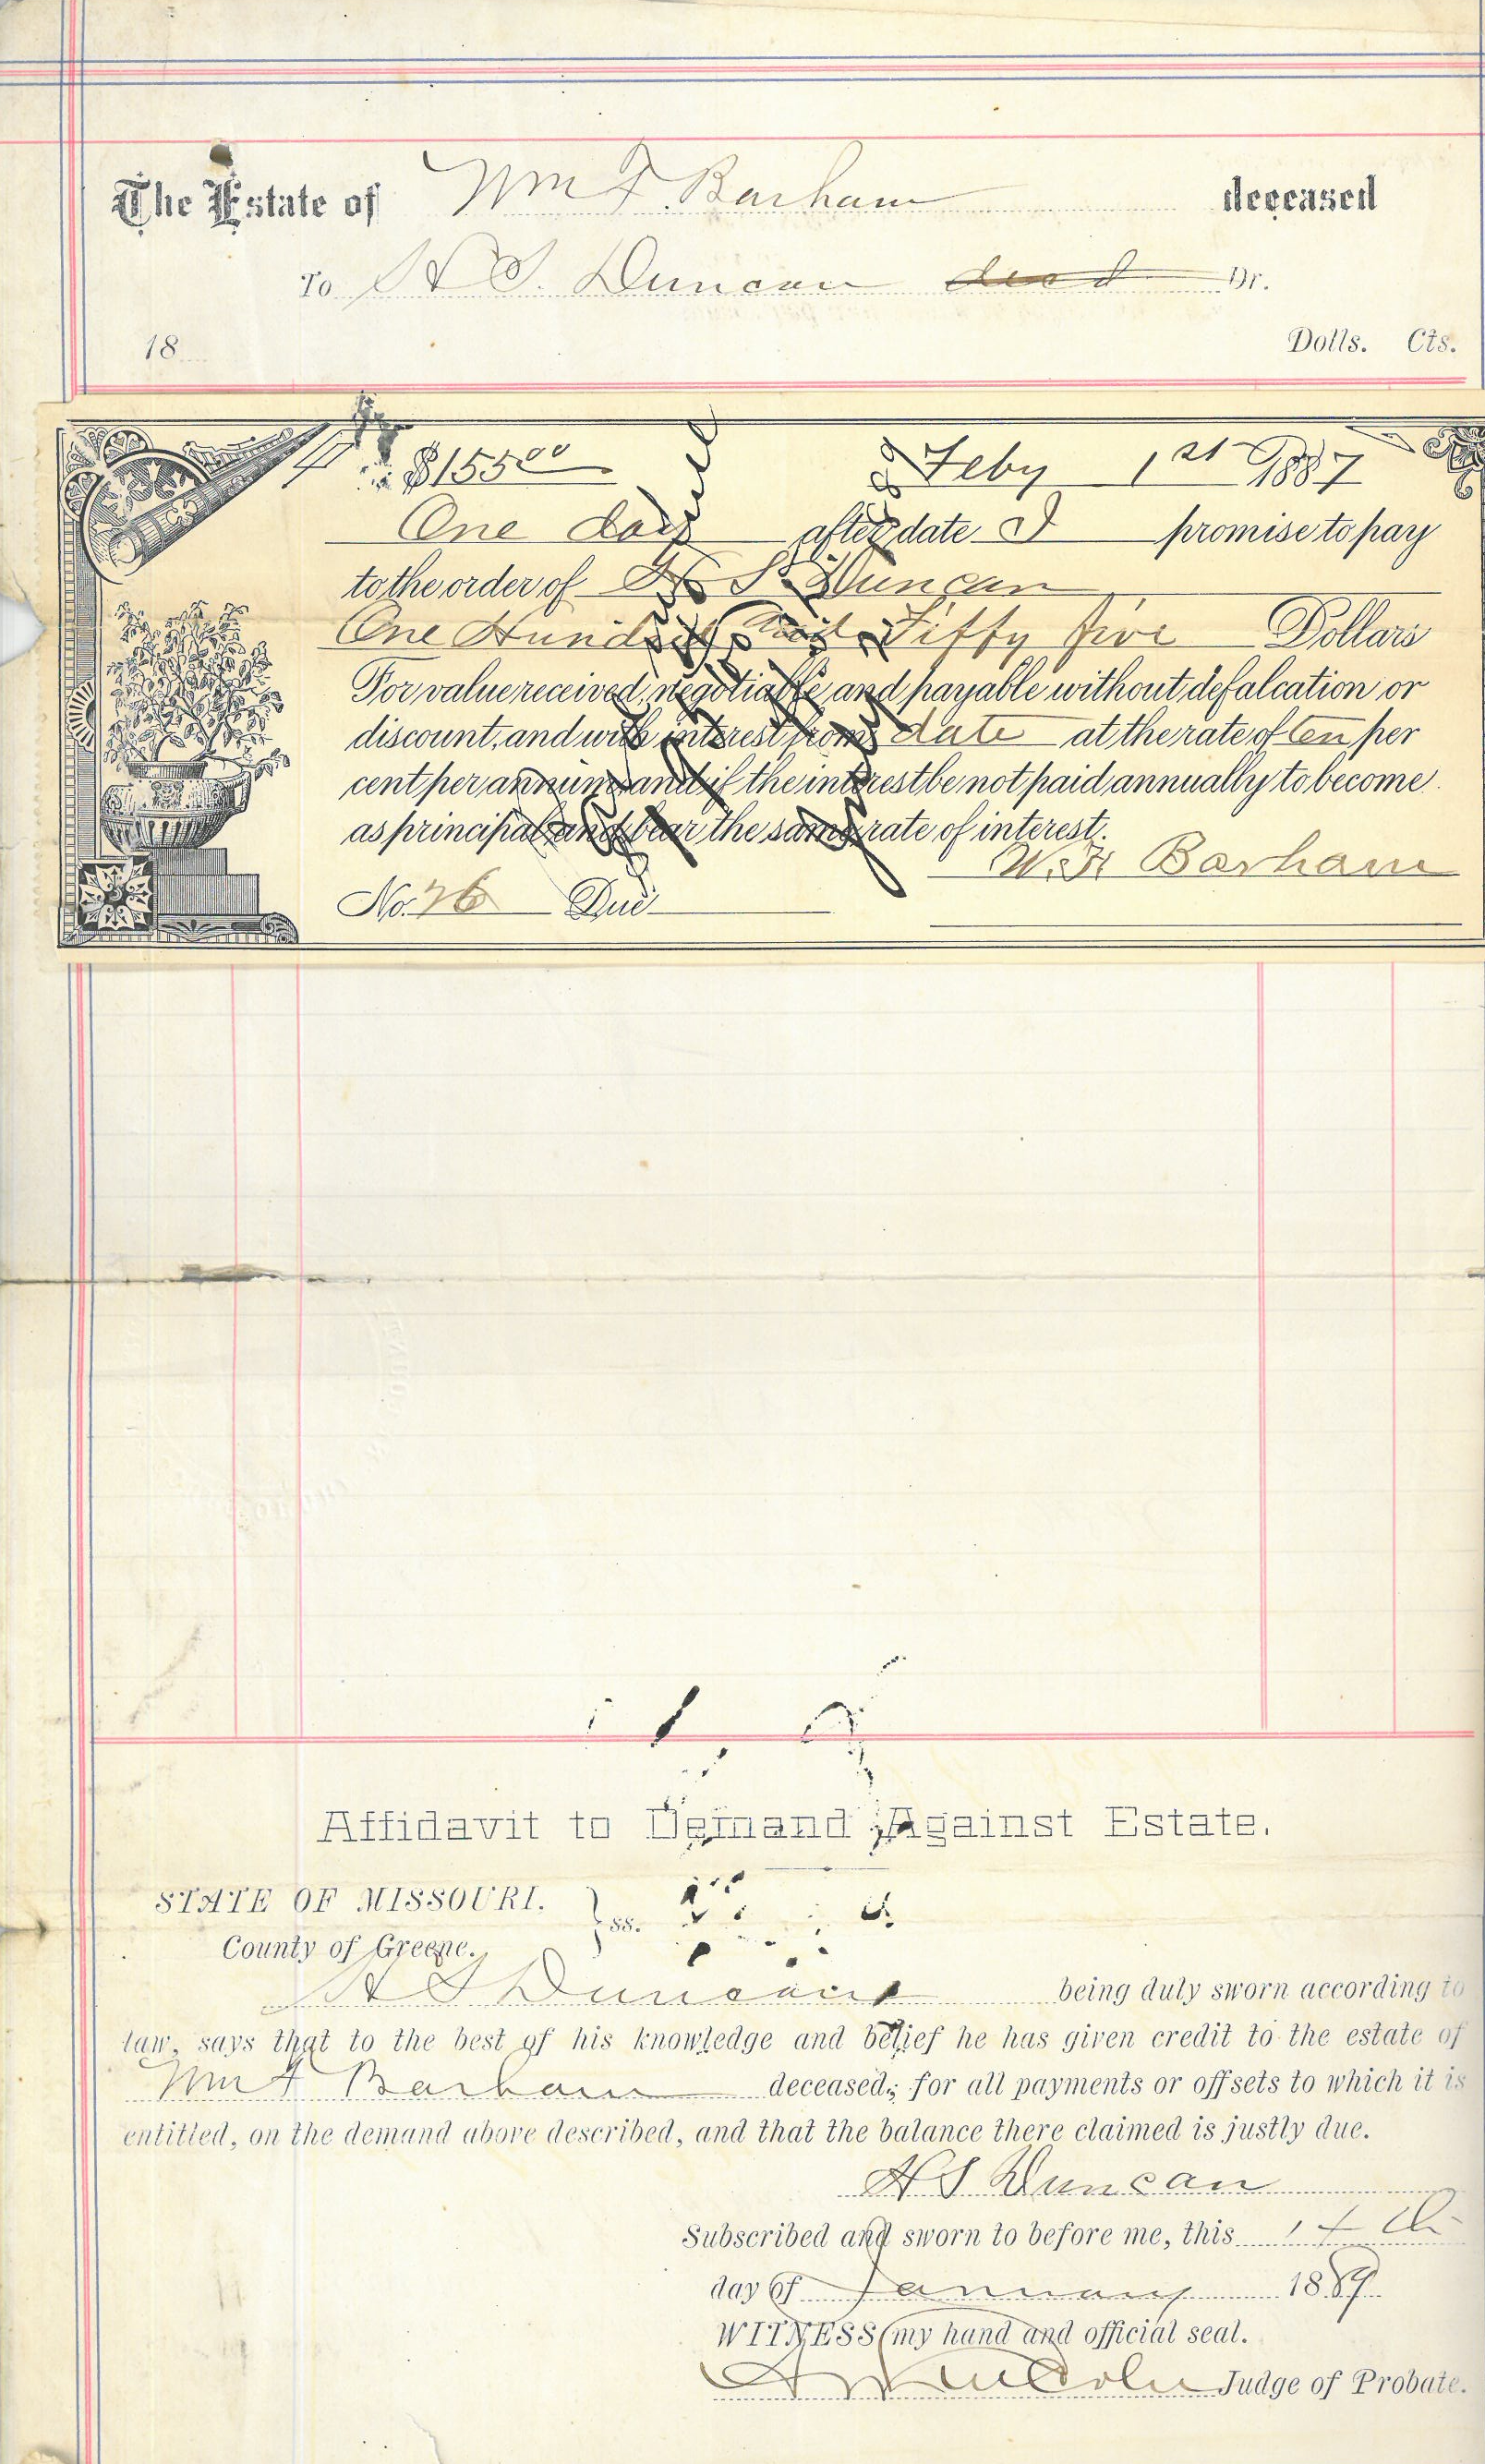 The Estate of Wm F. Barham deceased
To H S. Duncan deed Dr.
18 Dolls. Cts.
$155.00 Feby 1st 1887
One day after date I promise to pay
to the order of H S Duncan
One Hundred and Fiffy five Dollars
For value received, negotiable and payable without defalcation or
discount, and with interest from date at the rate of ten per
cent per annum, and if the interest be not paid annually to become
as principal and bear the same rate of interest.
W. F. Barham
No. 26 Due
Affidavit to Demand Against Estate.
STATE OF MISSOURI.
County of Greene. } ss.
H S Duncan being duly sworn according to
law, says that to the best of his knowledge and belief he has given credit to the estate of
Wm F Barham deceased; for all payments or offsets to which it is
entitled, on the demand above described, and that the balance there claimed is justly due.
H S Duncan
Subscribed and sworn to before me, this 14th
day of January 1889
WITNESS my hand and official seal.
Judge of Probate.